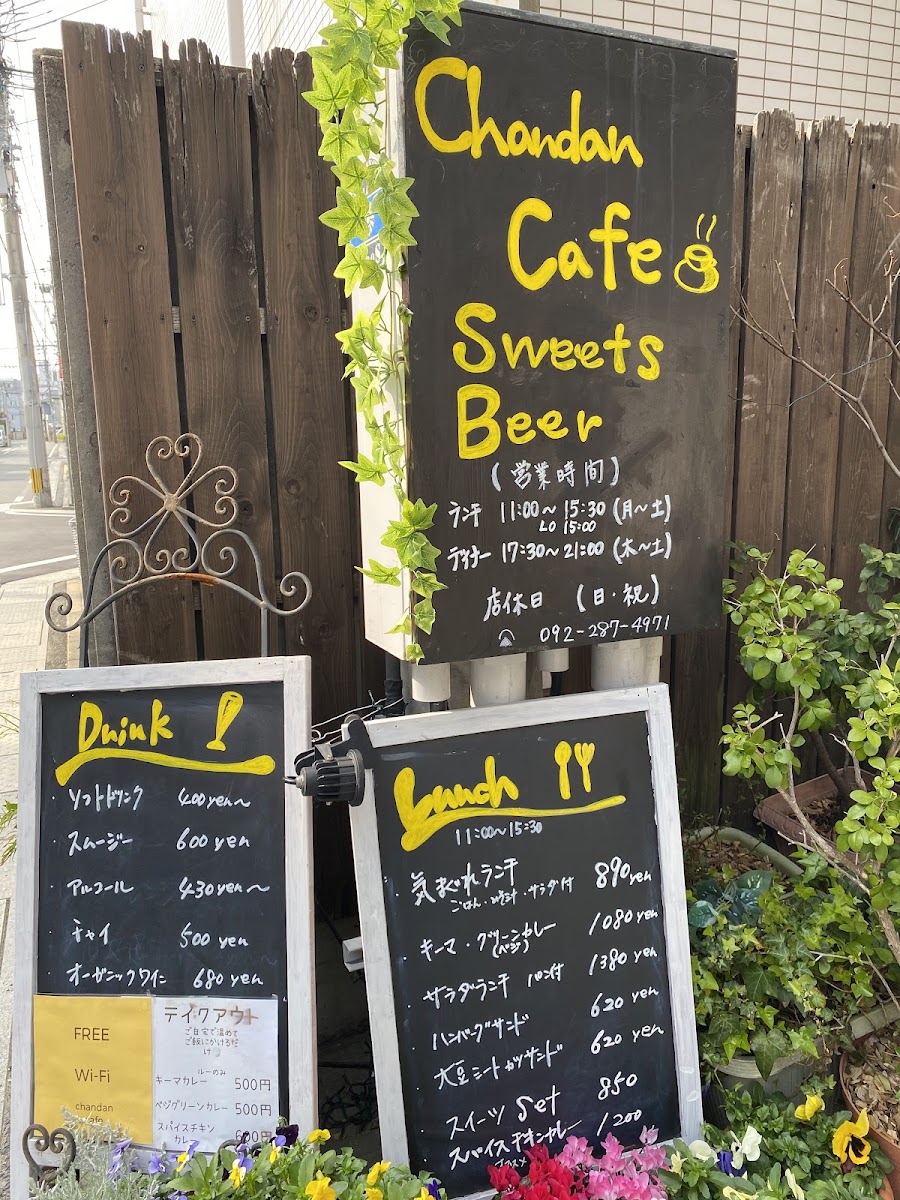 Chandan
Cafe
Sweets
Beer
(営業時間)
ランチ 11:00～15:30 (月～土)
LO 15:00
ディナー 17:30～21:00 (木～土)
店休日 (日・祝)
092-287-4971
Drink !
・ソフトドリンク 400yen～
・スムージー 600yen
・アルコール 430yen～
・チャイ 500yen
・オーガニックワイン 680yen
FREE
Wi-Fi
chandan
cafe
テイクアウト
ご自宅で温めて
ご飯にかけるだ
け
ルーのみ
キーマカレー 500円
ベジグリーンカレー 500円
スパイスチキン
カレー 600円
Lunch
11:00～15:30
気まぐれランチ 890yen
ごはん・みそ汁・サラダ付
キーマ・グリーンカレー 1080yen
(ベジ)
サラダランチ パン付 1380yen
ハンバーグサンド 620yen
大豆ミートカツサンド 620yen
スイーツ Set 850
スパイスチキンカレー 1200
オススメ